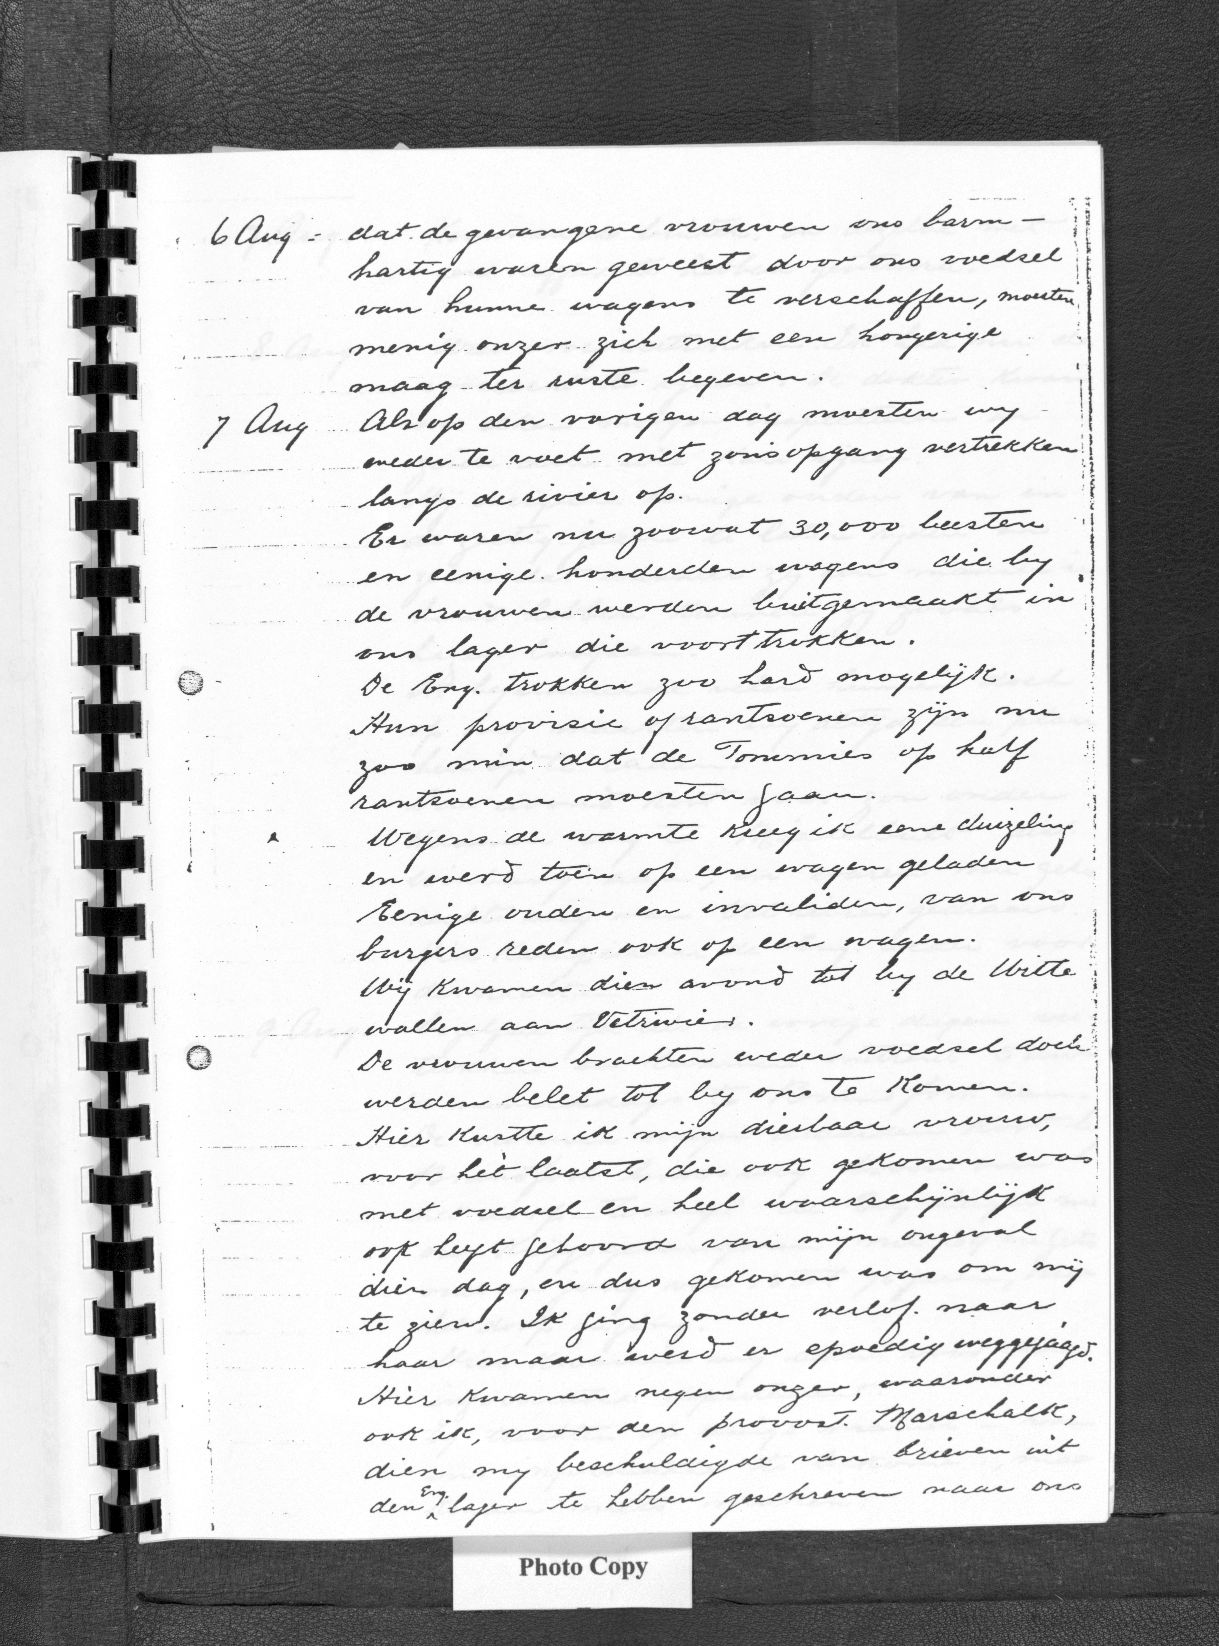 6 Aug = dat de gevangene vrouwen ons barm-
hartig waren geweest door ons voedsel
van hunne wagens te verschaffen, moesten
menig onzer zich met een hongerige
maag ter ruste begeven.
7 Aug Als op den vorigen dag moesten wy
weder te voet met zonsopgang vertrekken
langs de rivier op.
Er waren nu zoowat 30,000 beesten
en eenige honderden wagens die by
de vrouwen werden buitgemaakt in
ons lager die voorttrokken.
De Eng. trokken zoo hard mogelijk.
Hun provisie of rantsoenen zijn nu
zoo min dat de Tommies op half
rantsoenen moesten gaan.
Wegens de warmte kreeg ik eene duizeling
en werd toen op een wagen geladen
Eenige ouden en invaliden, van ons
burgers reden ook op een wagen.
Wij kwamen dien avond tot by de Witte
wallen aan Vetrivier.
De vrouwen brachten weder voedsel doch
werden belet tot by ons te komen.
Hier kustte ik mijn dierbaar vrouw,
voor hèt laatst, die ook gekomen was
met voedsel en heel waarschijnlijk
ook heyt gehoord van mijn ongeval
dien dag, en dus gekomen was om mij
te zien. Ik ging zonder verlof naar
haar maar werd er spoedig weggejaagd.
Hier kwamen negen onzer, waaronder
ook ik, voor den provost. Marschalk,
dien my beschuldigde van brieven uit
den Eng. lager te hebben geschreven naar ons
Photo Copy